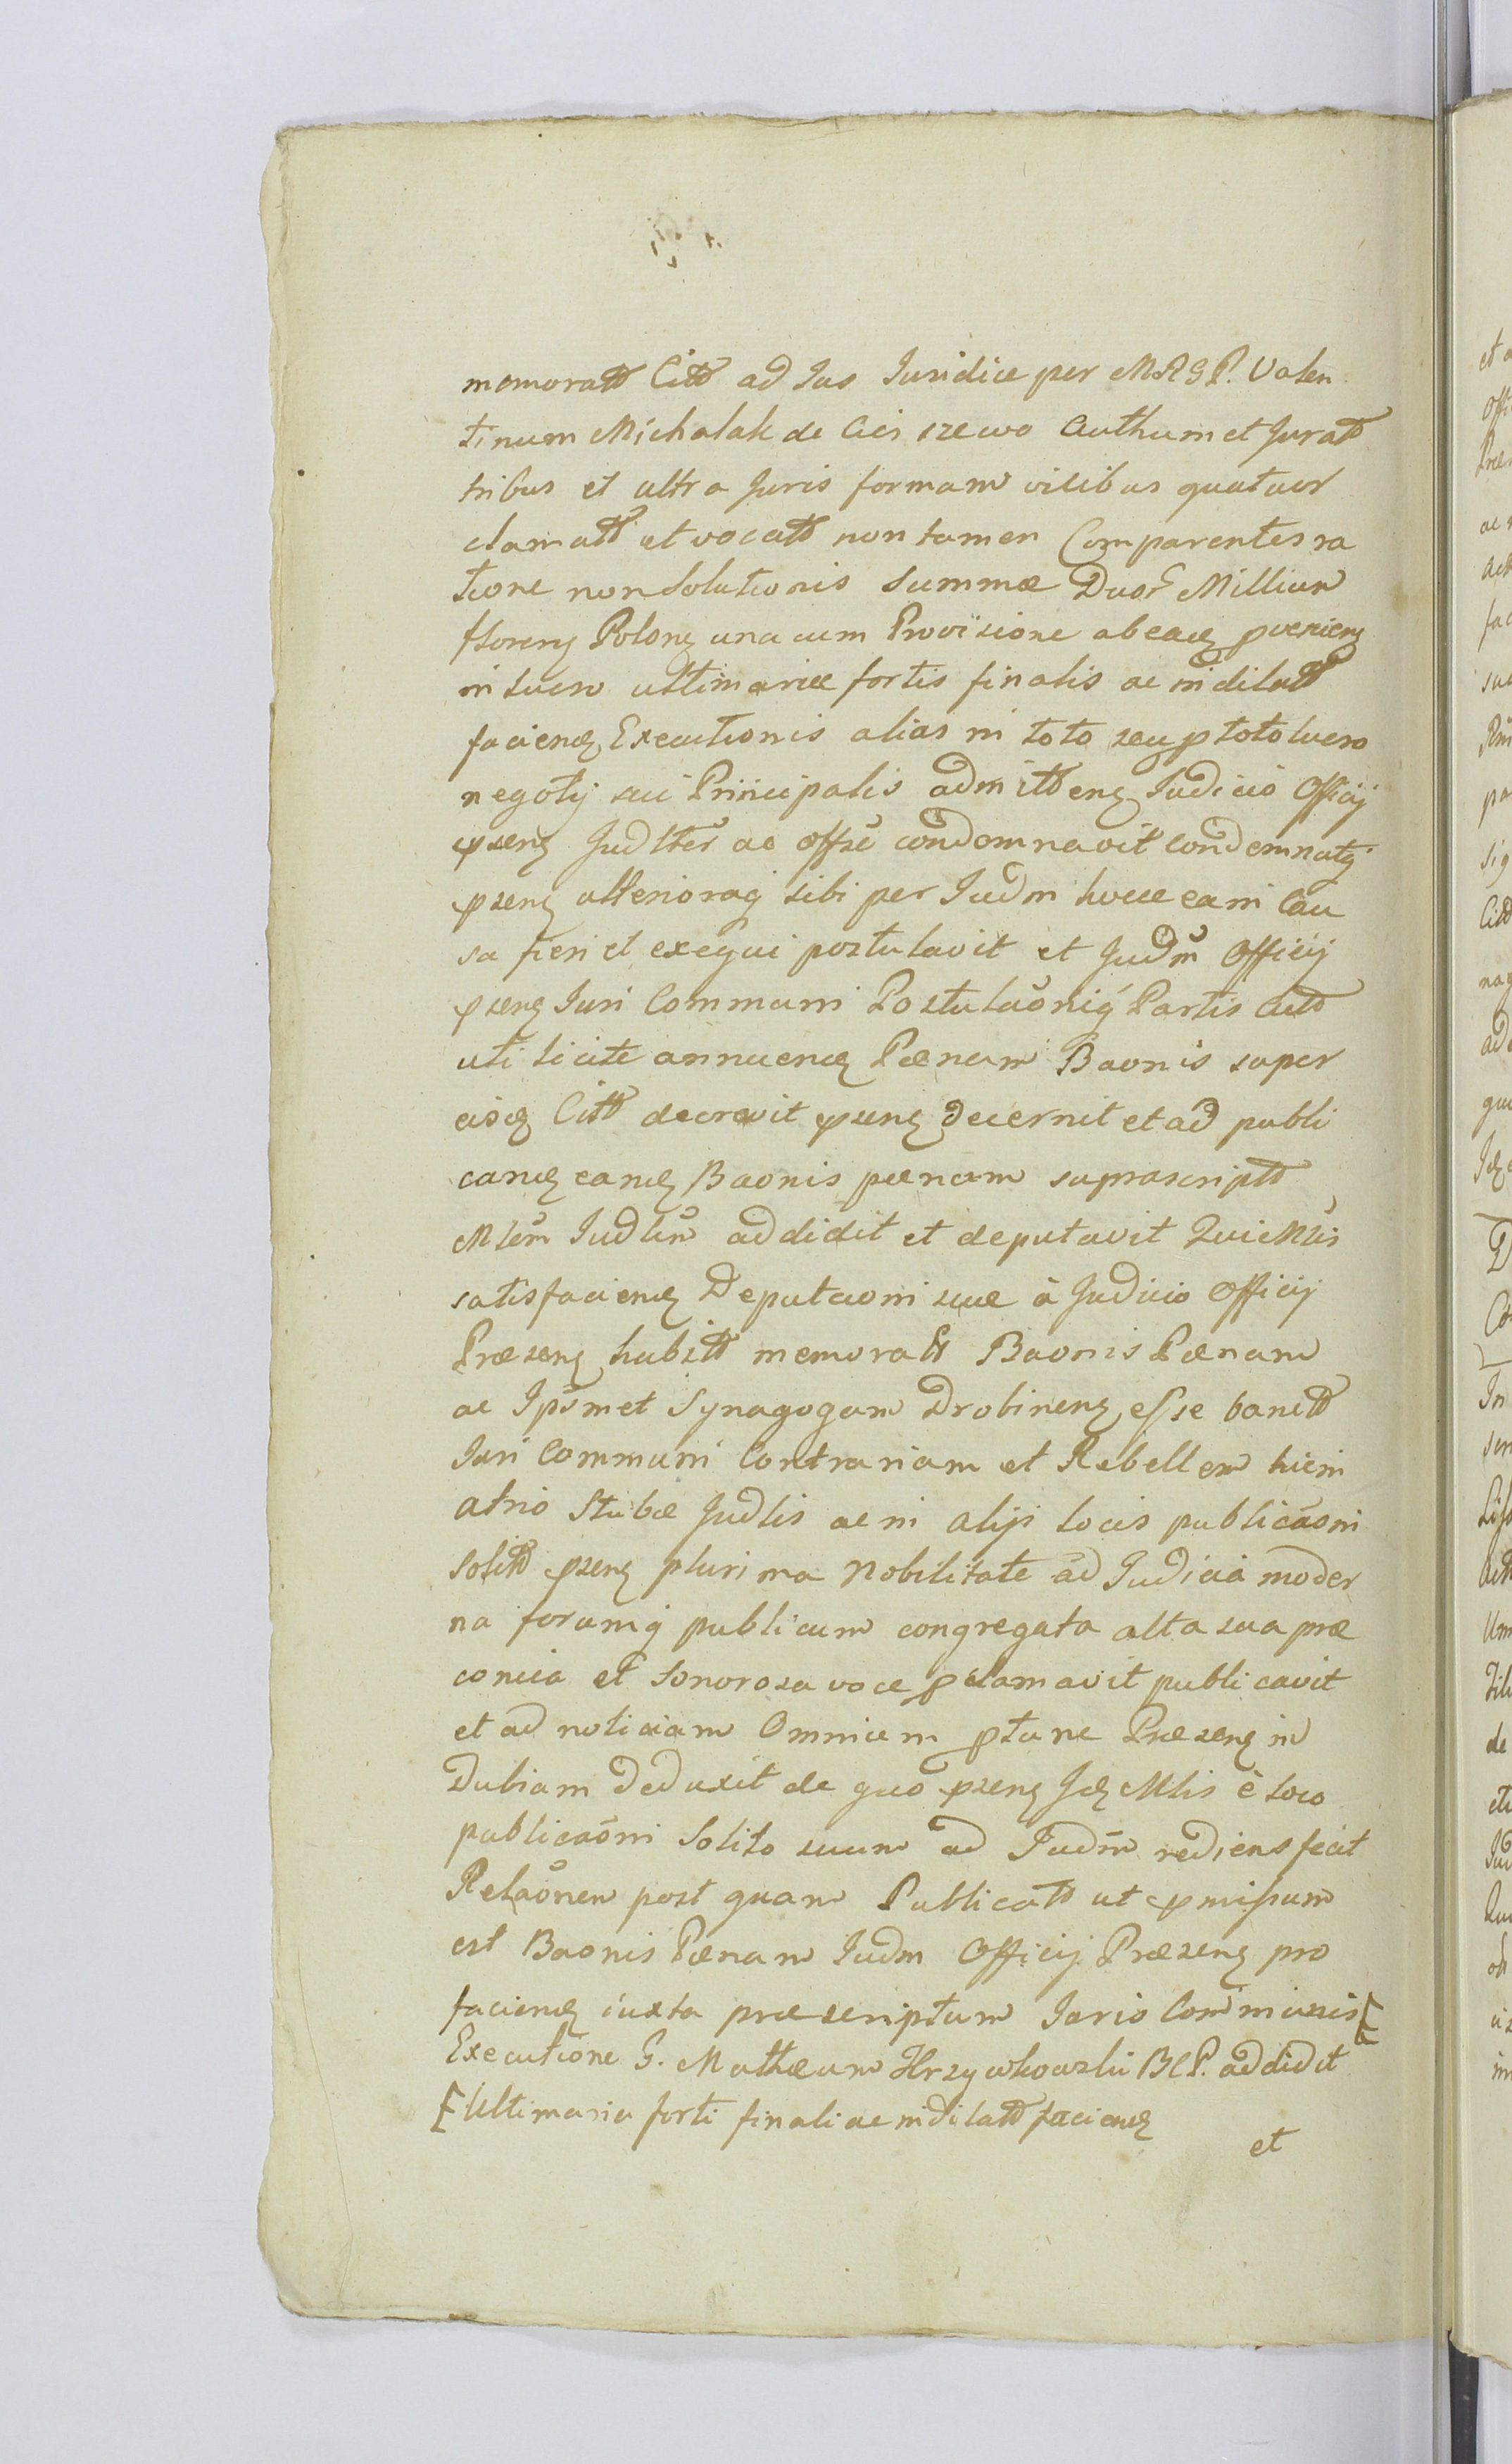 memoratt Citt ad Jus Juridice per MRGP. Valen
tinum Michalak de Cieszewo Authum et Juratt
tribus et ultra Juris formam vicibus quatuor
clamatt et vocatt non tamen Comparentes ra
tione non Solutionis Summæ Duor Millium
floreng Polong una cum Provisione ab eadq pvenieng
in lucro ultimariæ fortis finalis ac indilatt
faciendq Executionis alias in toto seu p toto lucro
negotij sui Principalis admitteng Judicio Officij
pseng Judlter ac offse condemnavit condemnatq
pseng ulterioraq sibi per Judm hocce ea in Cau
sa fieri et exequi postulavit et Judm Officij
pseng Juri Communi Postulaoniq Partis Actt
uti licite annuendq Pænam Baonis super
eisdq Citt decrevit pseng decernit et ad publi
candq eandq Baonis pænam suprascriptt
Mlem Judlem addidit et deputavit Qui Mlis
satisfaciendq Deputaoni suæ à Judicio Officij
Præseng habitt memoratt Baonis Pænam
ac Ipsmet Synagogam Drobineng esse banitt
Juri Communi Contrariam et Rebellem hic in
atrio Stubæ Judlis ac in alijs locis publicaoni
Solitt pseng plurima Nobilitate ad Judicia moder
na forumq publicum congregata alta sua præ
conica et Sonorosa voce pclamavit publicavit
et ad noticiam Omnium ptunc Præseng in
dubiam deduxit de quo pseng Jdq Mlis è loco
publicaoni Solito suum ad Judm rediens fecit
Relaonem post quam Publicatt ut pmissum
est Baonis Pænam Judm Officij Præseng pro
faciendq iuxta præscriptum Juris Communis
Executione G. Mathæum Krzywkowski BCP. addidit
Ultimaria forti finali ac indilatt faciendq
et